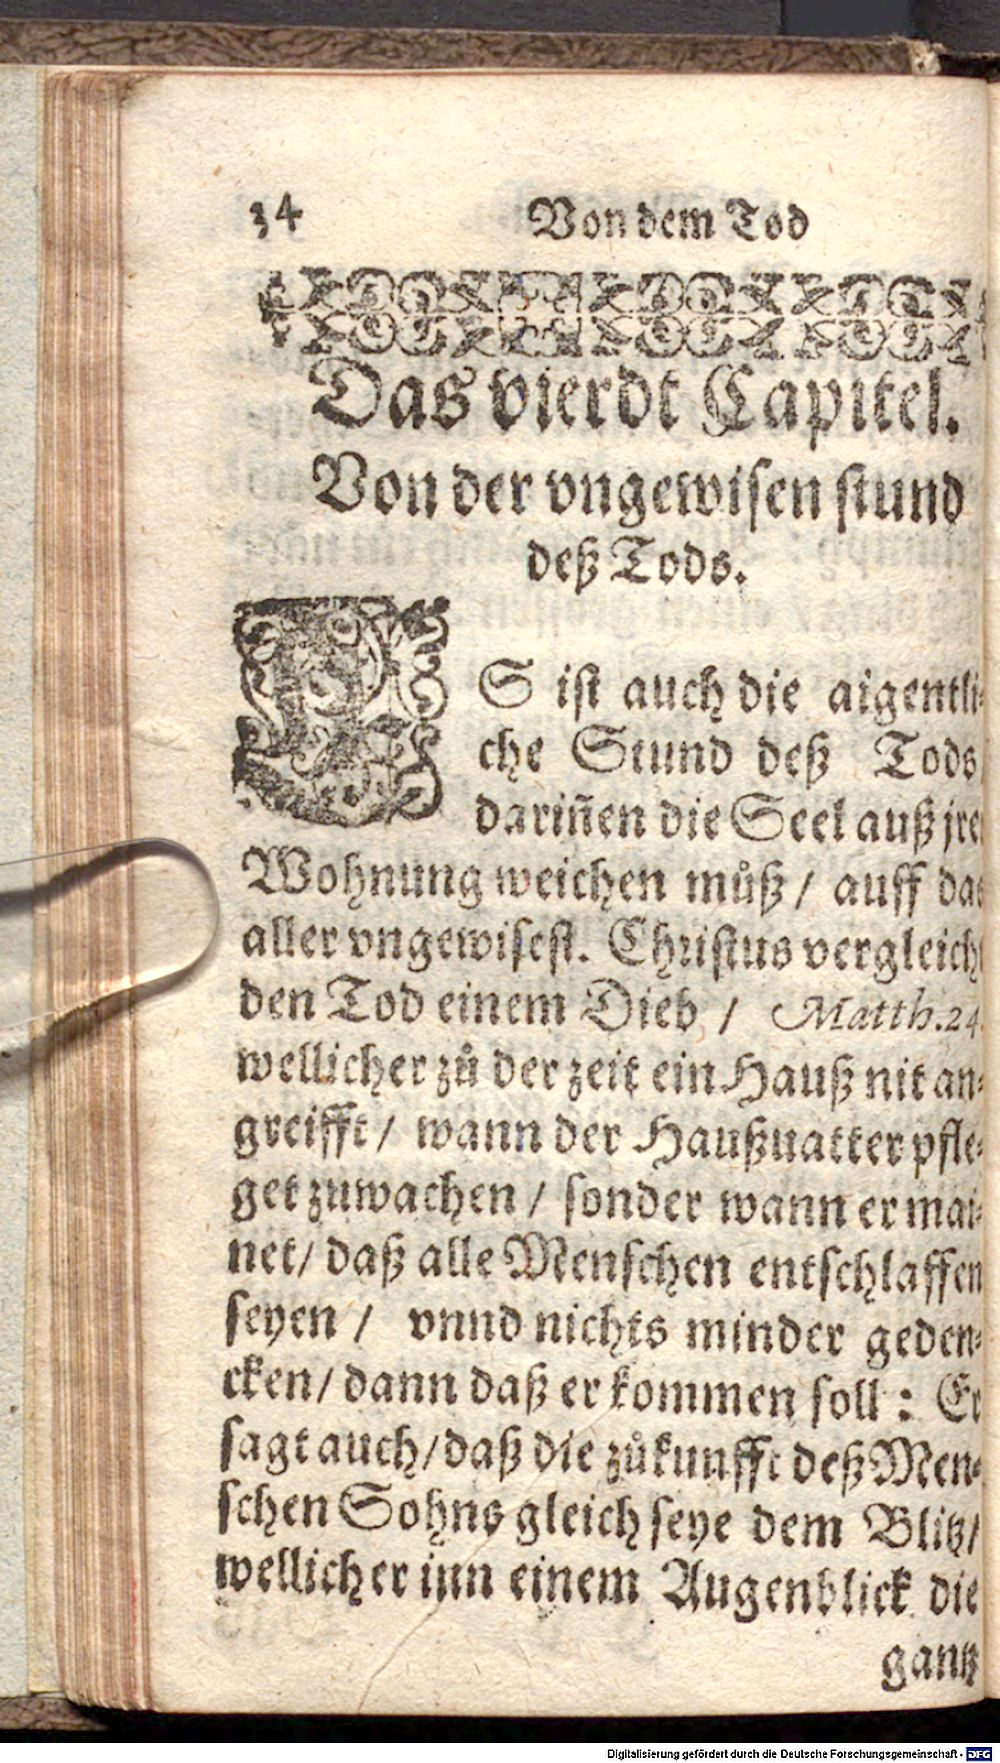 34 Von dem Tod
Das vierdt Capitel.
Von der vngewisen stund
deß Tods.
ES ist auch die aigentli-
che Stund deß Tods
dariñen die Seel auß jrer
Wohnung weichen můß / auff das
aller vngewisest. Christus vergleicht
den Tod einem Dieb / Matth.24.
wellicher zů der zeit ein Hauß nit an-
greifft / wann der Haußuatter pfle-
get zuwachen / sonder wann er mai-
net / daß alle Menschen entschlaffen
seyen / vnnd nichts minder geden-
cken / dann daß er kommen soll : Er
sagt auch / daß die zůkunfft deß Men-
schen Sohns gleich seye dem Blitz /
wellicher inn einem Augenblick die
gantz
Digitalisierung gefördert durch die Deutsche Forschungsgemeinschaft - DFG